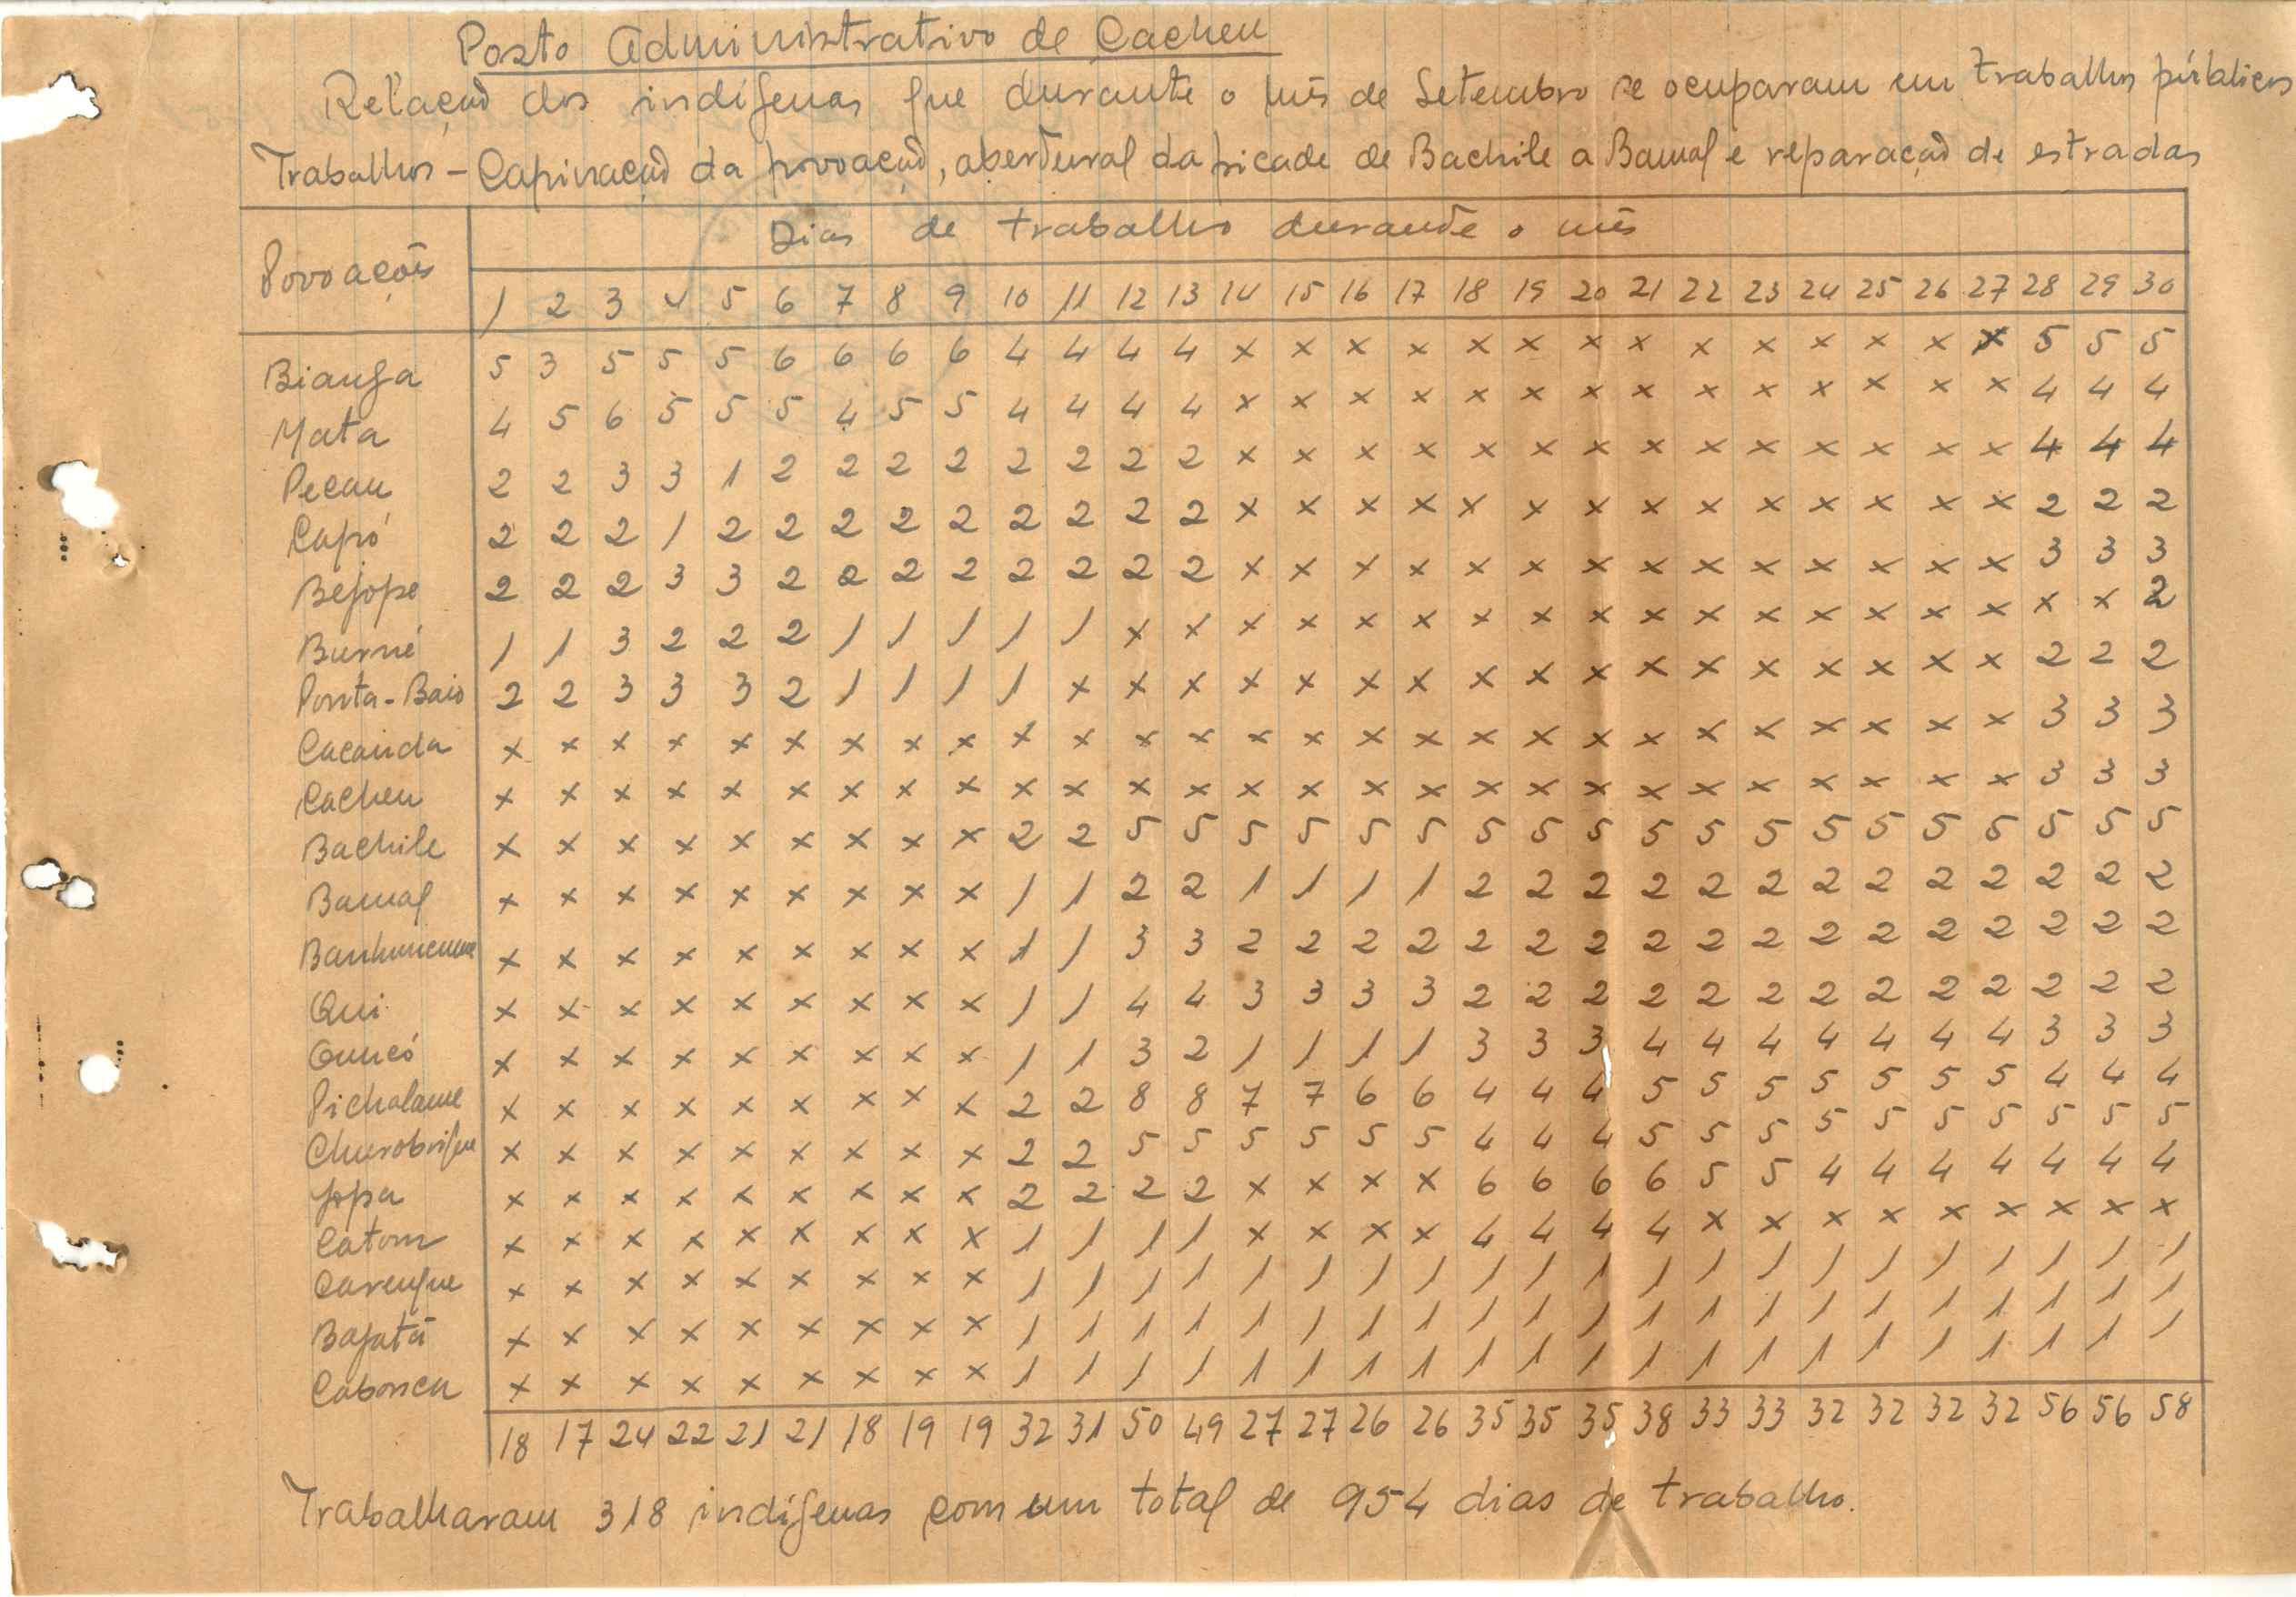 Posto Administrativo de Cacheu
Relação dos indígenas que durante o mês de Setembro se ocuparam em trabalhos públicos
Trabalhos - Capinação da povoação, aberdural da picade de Bachile a Bamal e reparação de estradas
Povoações Dias de trabalho durande o mês
1 2 3 4 5 6 7 8 9 10 11 12 13 14 15 16 17 18 19 20 21 22 23 24 25 26 27 28 29 30
Bianga 5 3 5 5 5 6 6 6 6 4 4 4 4 x x x x x x x x x x x x x x 5 5 5
Mata 4 5 6 5 5 5 4 5 5 4 4 4 4 x x x x x x x x x x x x x x 4 4 4
Pecau 2 2 3 3 1 2 2 2 2 2 2 2 2 x x x x x x x x x x x x x x 4 4 4
Capó 2 2 2 1 2 2 2 2 2 2 2 2 2 x x x x x x x x x x x x x x 2 2 2
Bejope 2 2 2 3 3 2 2 2 2 2 2 2 2 x x x x x x x x x x x x x x 3 3 3
Burné 1 1 3 2 2 2 1 1 1 1 1 x x x x x x x x x x x x x x x x x x 2
Ponta-Baio 2 2 3 3 3 2 1 1 1 1 x x x x x x x x x x x x x x x x x 2 2 2
Cacanda x x x x x x x x x x x x x x x x x x x x x x x x x x x 3 3 3
Cacheu x x x x x x x x x x x x x x x x x x x x x x x x x x x 3 3 3
Bachile x x x x x x x x x 2 2 5 5 5 5 5 5 5 5 5 5 5 5 5 5 5 5 5 5 5
Bamal x x x x x x x x x 1 1 2 2 1 1 1 1 2 2 2 2 2 2 2 2 2 2 2 2 2
x x x x x x x x x 1 1 3 3 2 2 2 2 2 2 2 2 2 2 2 2 2 2 2 2 2
Qui x x x x x x x x x 1 1 4 4 3 3 3 3 2 2 2 2 2 2 2 2 2 2 2 2 2
x x x x x x x x x 1 1 3 2 1 1 1 1 3 3 3 4 4 4 4 4 4 4 3 3 3
Picholame x x x x x x x x x 2 2 8 8 7 7 6 6 4 4 4 5 5 5 5 5 5 5 4 4 4
x x x x x x x x x 2 2 5 5 5 5 5 5 4 4 4 5 5 5 5 5 5 5 5 5 5
x x x x x x x x x 2 2 2 2 x x x x 6 6 6 6 5 5 4 4 4 4 4 4 4
Catom x x x x x x x x x 1 1 1 1 x x x x 4 4 4 4 x x x x x x x x x
Carengue x x x x x x x x x 1 1 1 1 1 1 1 1 1 1 1 1 1 1 1 1 1 1 1 1 1
Bajatã x x x x x x x x x 1 1 1 1 1 1 1 1 1 1 1 1 1 1 1 1 1 1 1 1 1
Caboncu x x x x x x x x x 1 1 1 1 1 1 1 1 1 1 1 1 1 1 1 1 1 1 1 1 1
18 17 24 22 21 21 18 19 19 32 31 50 49 27 27 26 26 35 35 35 38 33 33 32 32 32 32 56 56 58
Trabalharam 318 indígenas com um total de 954 dias de trabalho.